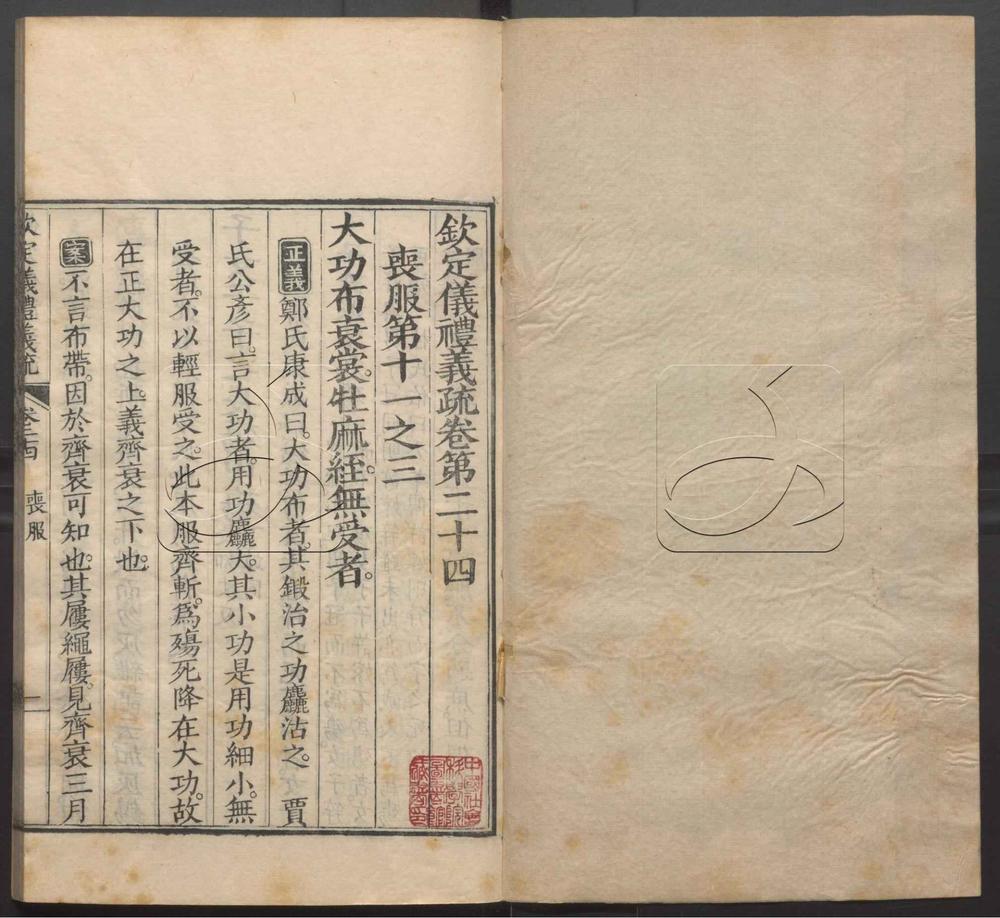 欽定儀禮義疏卷第二十四
喪服第十一之三
大功布衰裳。牡麻絰。無受者。
正義 鄭氏康成曰。大功布者。其鍛治之功麤沽之。 賈
氏公彥曰。言大功者。用功麤大。其小功是用功細小。無
受者。不以輕服受之。此本服齊斬。爲殤死降在大功。故
在正大功之上。義齊衰之下也。
案 不言布帶。因於齊衰可知也。其屨繩屨。見齊衰三月
欽定儀禮義疏 卷二十四 喪服 一